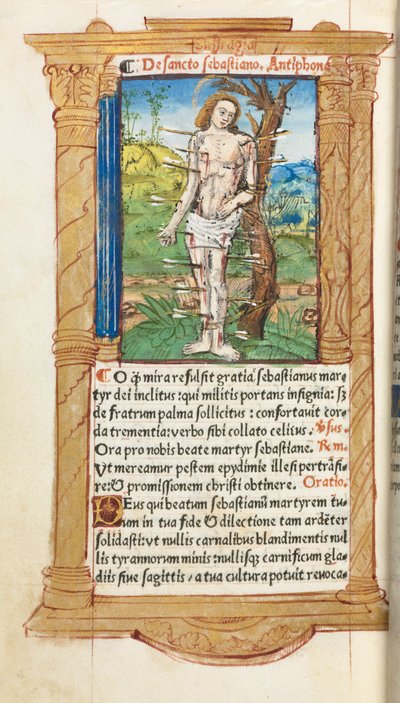 Suffragia
De sancto sebastiano. Antiphona
O q̃ mira refulsit gratia. Sebastianus mar-
tyr dei inclitus: qui militis portans insignia: sʒ
de fratrum palma sollicitus: confortauit cor-
da trementia: verbo sibi collato celitus. ℣sus.
Ora pro nobis beate martyr sebastiane. Rem.
Vt mereamur pestem epydimie illesi pertrãsi-
re: & promissionem christi obtinere. Oratio.
DEus qui beatum sebastianũ martyrem tuum
in tua fide & dilectione tam ardẽter
solidasti: vt nullis carnalibus blandimentis nul
lis tyrannorum minis: nullisqʒ carnificum gla-
diis siue sagittis / a tua cultura potuit reuoca-